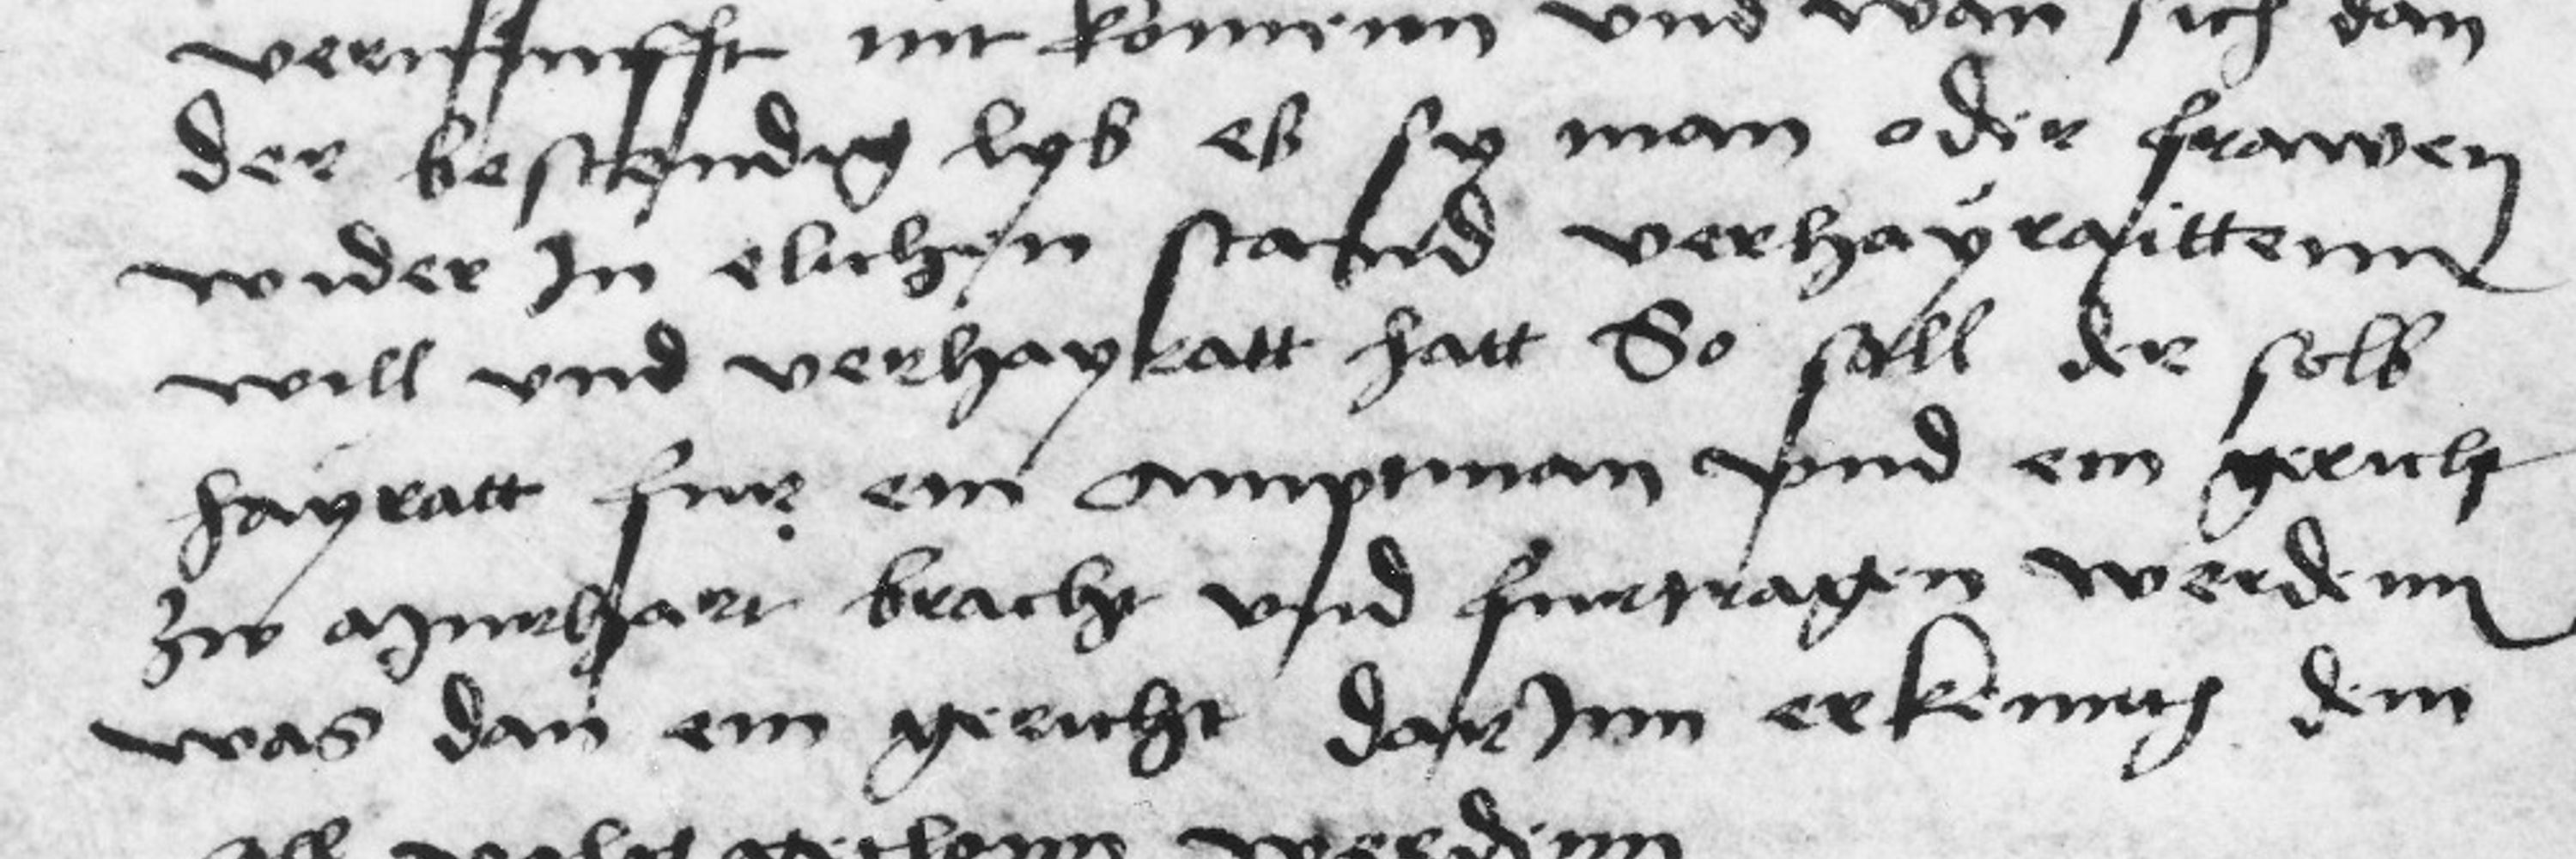 mit komenn vnd wan sich dan
der bestendig lyb eß sy man oder frawen
wider In elichen stand verhayraittenn
will vnd verhayratt hatt So soll der selb
hayratt fur ein amptman vnd ein gericht
zw Murhart bracht vnd furtragen werdenn
was dan ein gericht darJnn erkennth dem
werdenn